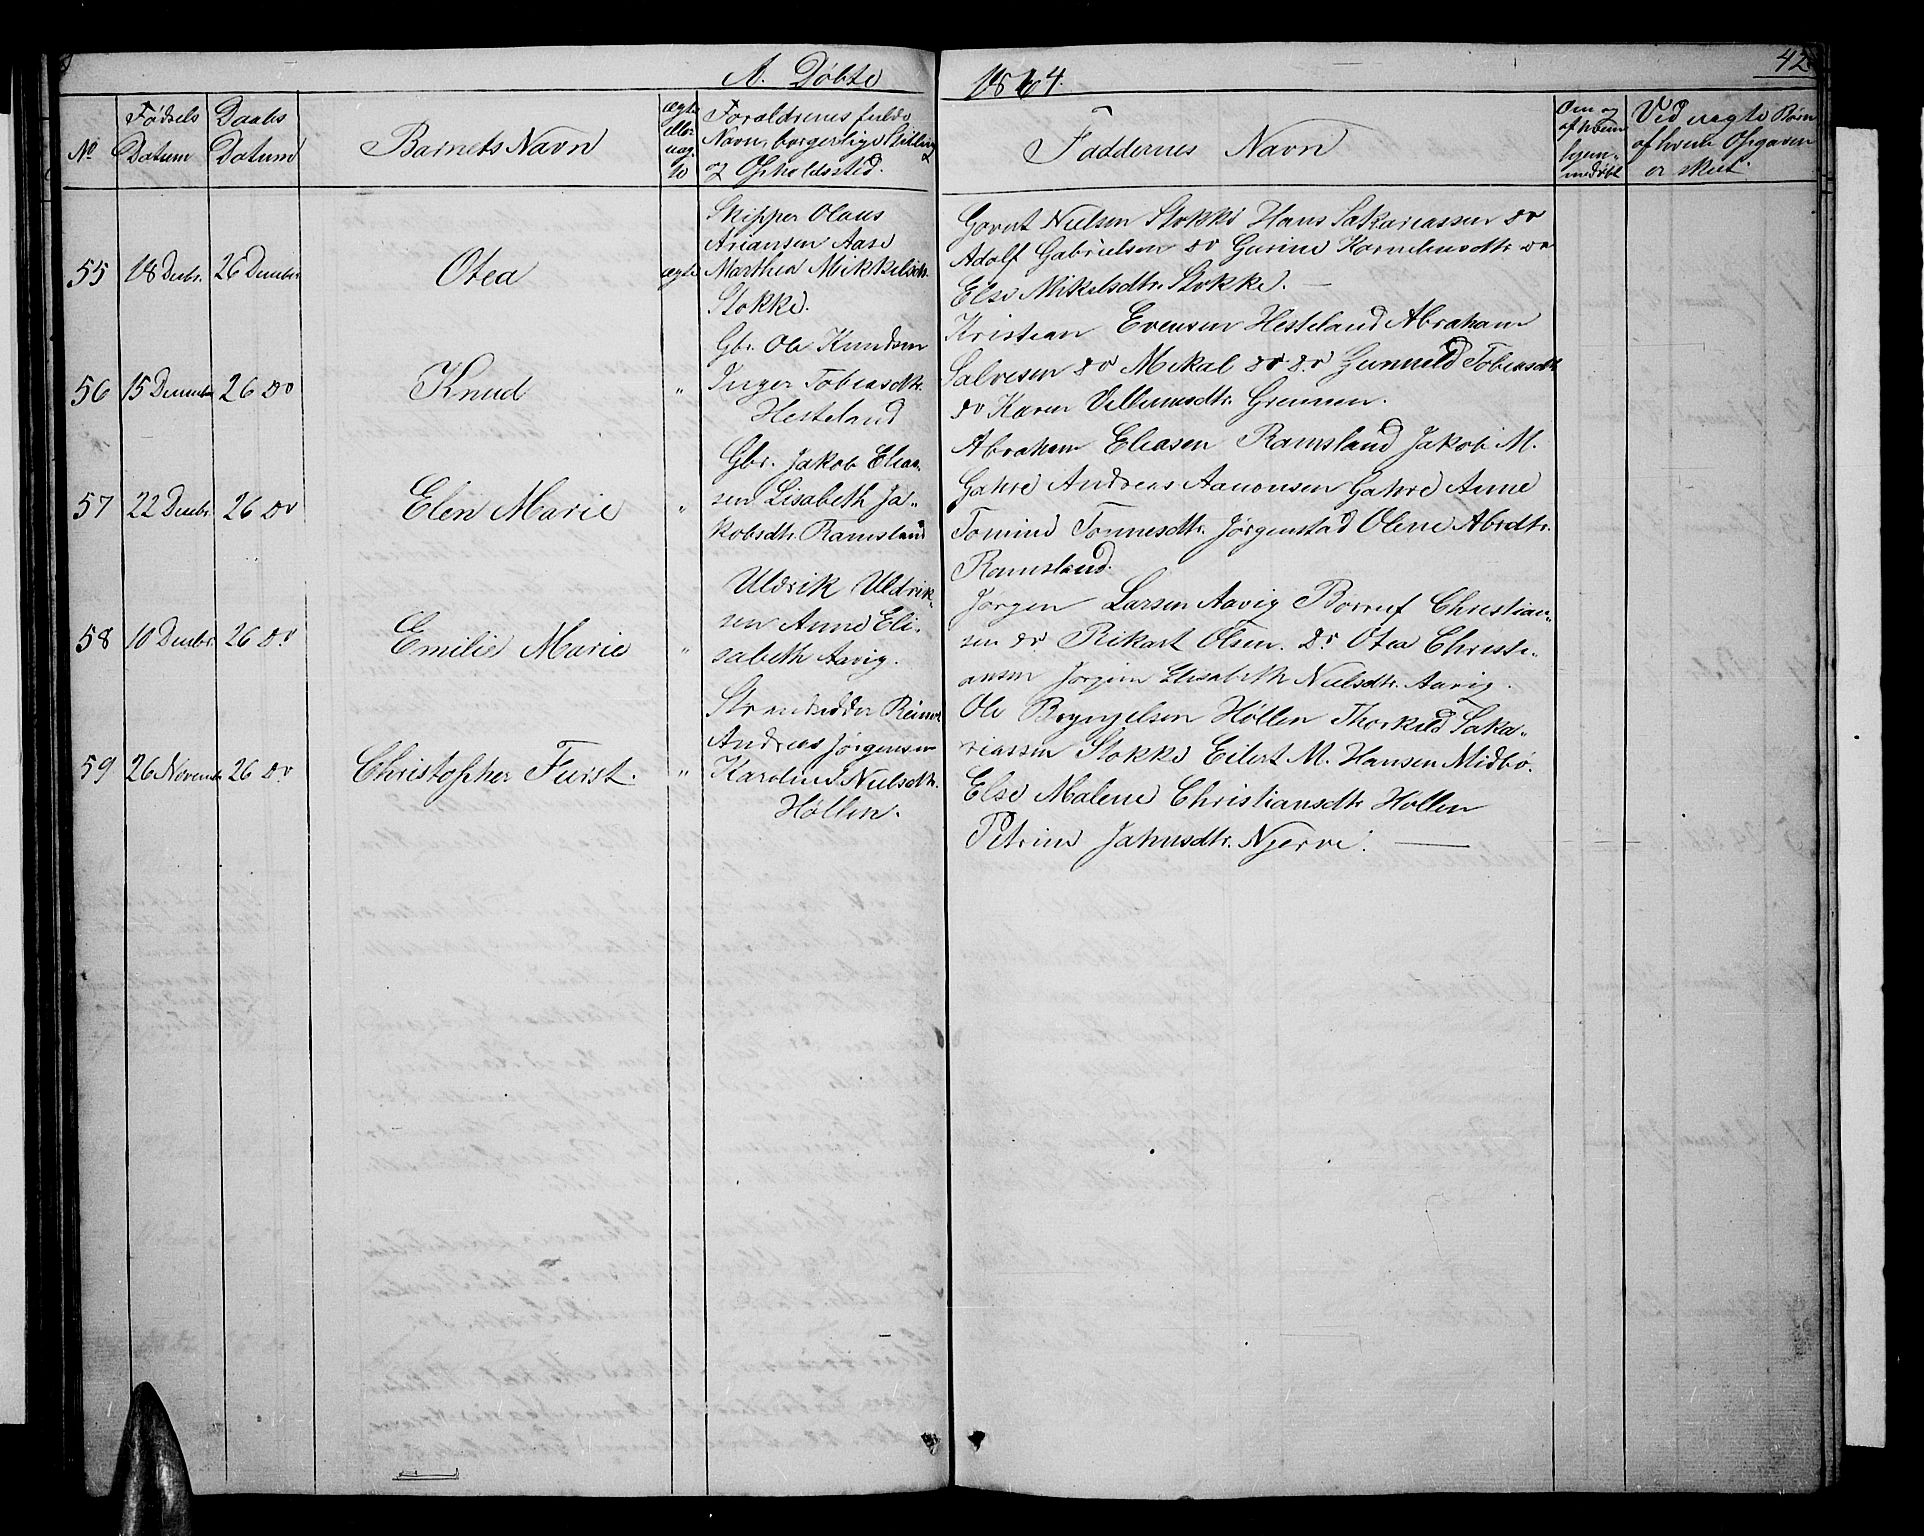 A. Døbte
1864.
42
No
Fødsels Datum
Daabs Datum
Barnets Navn
ægte eller uægte
Forældrenes fulde
Navn, borgerlige Stilling
og Opholdssted.
Faddernes Navn
Om og af hvem hjemmedøbt
Ved uægte Børn
af hvem Opgaven
er skeet
55 18 Decbr. 26 December Otea ægte
Skipper Olaus
Ariansen Aase
Marthea Mikkelsdtr.
Stokke.
Govert Nielsen Stokke Hans Sakariassen do
Adolf Gabrielsen do Gurine Korneliusdtr. do
Else Mikelsdtr. Stokke. —
56 15 December 26 do Knud "
Gbr. Ole Knudsen
Inger Tobiasdtr.
Hesteland
Kristian Evensen Hesteland Abraham
Salvesen do Mikal do do Gunnild Tobiasdtr
do Karen Villumsdtr. Grennen.
57 22 Decbr. 26 do Elen Marie "
Gbr. Jakob Elia-
sen Lisabeth Ja-
kobsdtr. Ramsland
Abraham Eliasen Ramsland Jakob M.
Gahre Andreas Aanonsen Gahre Anne
Tomine Tonnesdtr. Jørgenstad Olene Abrdtr.
Ramsland.
58 10 Decbr. 26 do Emilie Marie "
Uldrik Uldrik-
sen Anne Eli-
sabeth Aavig.
Jørgen Larsen Aavig Borruf Christian-
sen do Rikart Olsen. do Otea Christi-
ansen Jørgine Elisabeth Nielsdtr. Aavig.
59 26 November 26 do Christopher Furst. "
Strandsidder Reinert
Andreas Jørgensen
Karoline Nielsdtr.
Høllen.
Ole Bryngelsen Høllen Thorkild Saka-
riassen Stokke Eilert M. Hansen Midbø.
Else Malene Christiansdtr Hollen
Petrine Jahnsdtr. Njerve. —